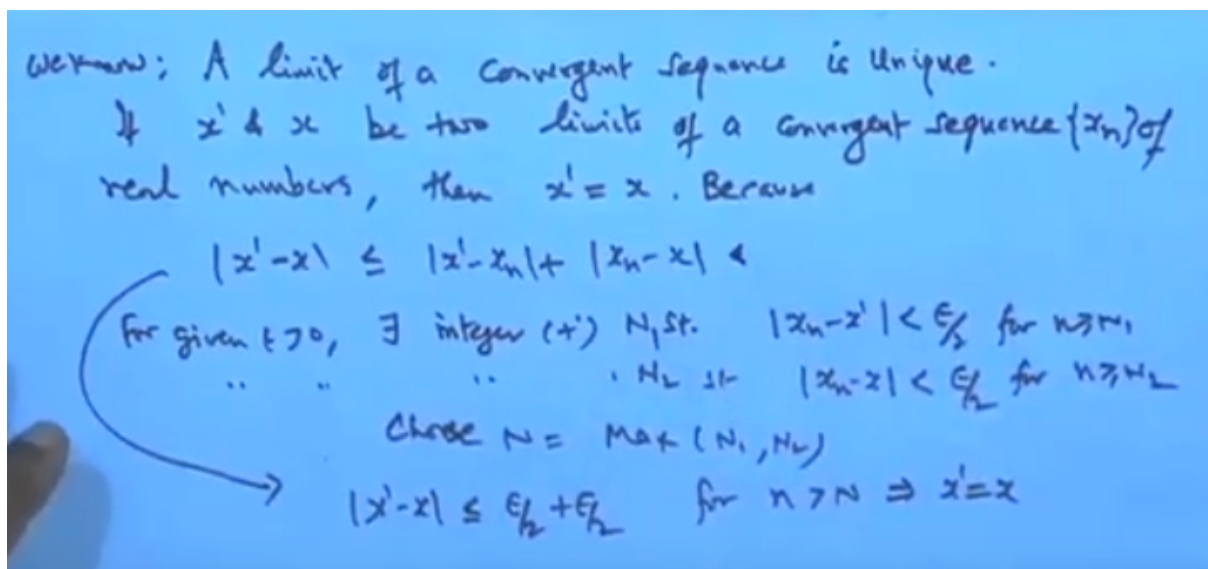 We know: A limit of a convergent sequence is Unique.
If x' & x be two limits of a convergent sequence {xn} of
real numbers, then x' = x. Because
|x'-x| ≤ |x'-xn| + |xn-x| <
For given ε>0, ∃ integer (+) N₁ st. |xn-x'| < ε/2 for n≥N₁
.. .. .. . N₂ st |xn-x| < ε/2 for n≥N₂
Choose N = Max (N₁, N₂)
|x'-x| ≤ ε/2 + ε/2 for n>N ⇒ x'=x